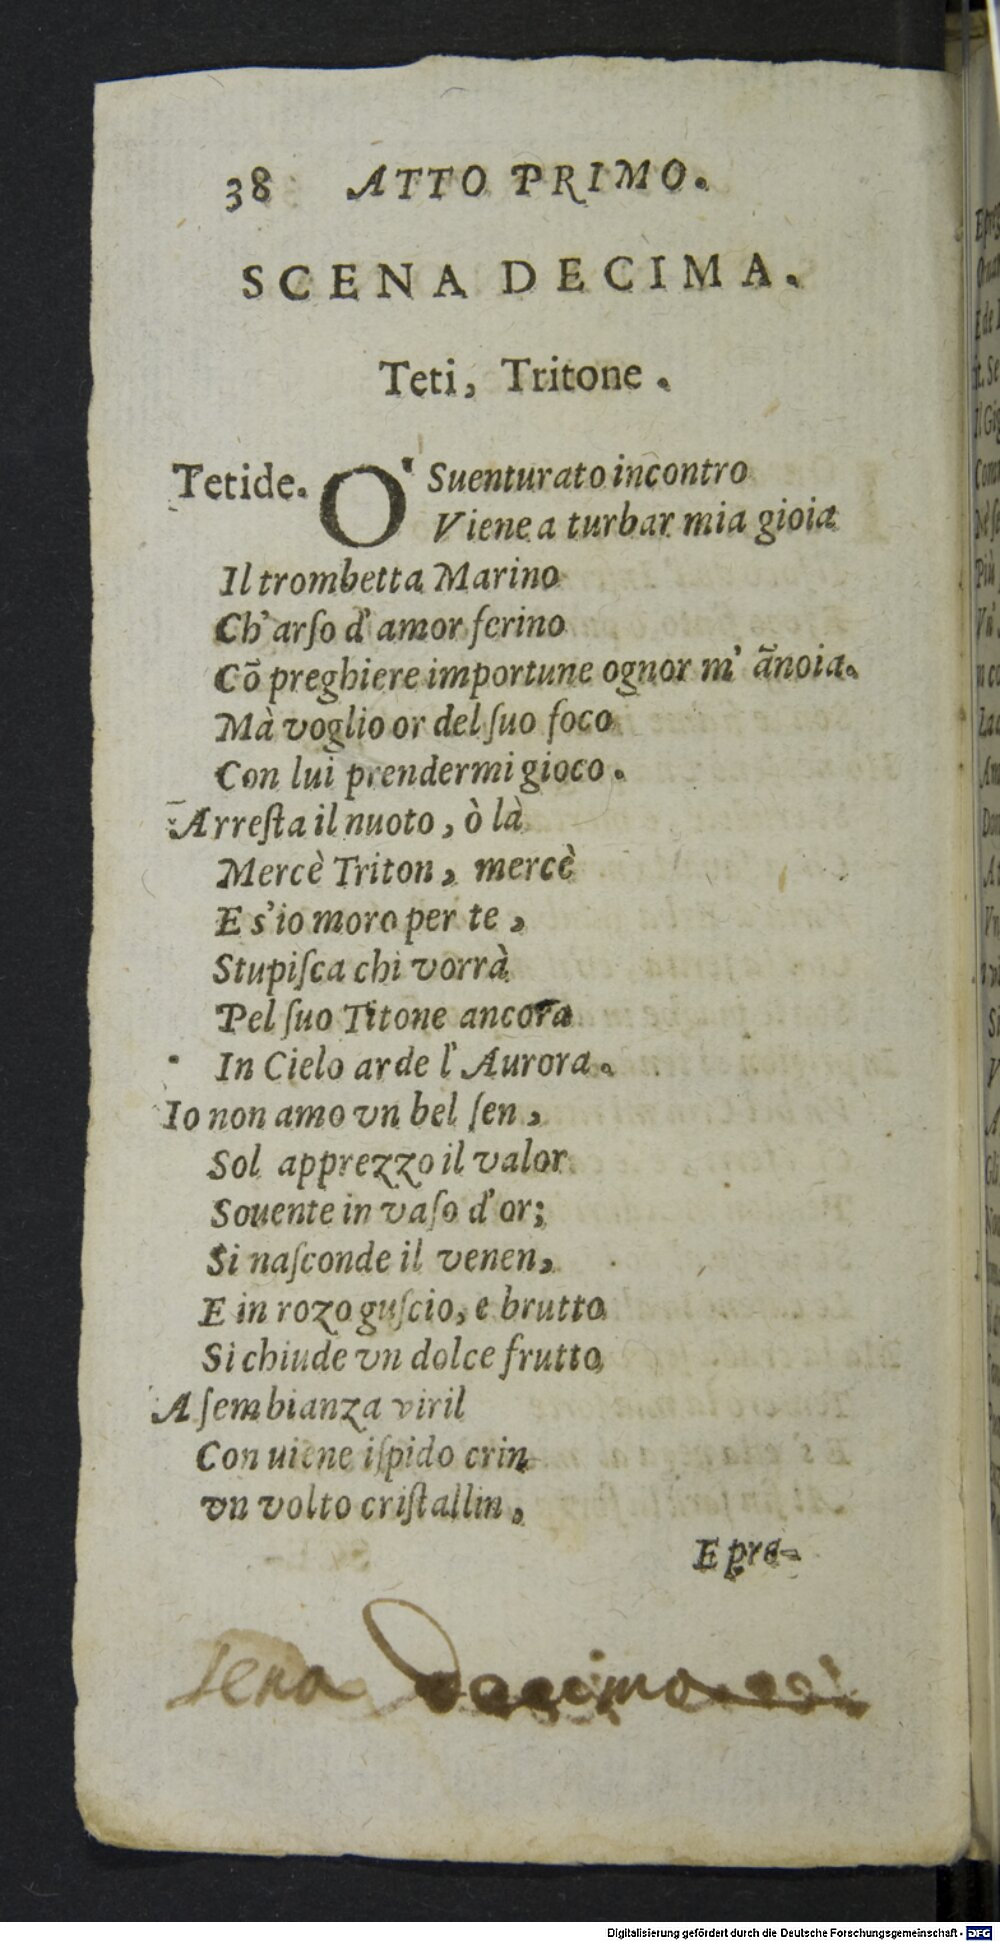 38 ATTO PRIMO.
SCENA DECIMA.
Teti, Tritone.
Tetide. O' Suenturato incontro
Viene a turbar mia gioia
Il trombetta Marino
Ch' arſo d' amor ferino
Cō preghiere importune ognor m' ānoia.
Mà voglio or del ſuo foco
Con lui prendermi gioco.
Arreſta il nuoto, ò là
Mercè Triton, mercè
E s'io moro per te,
Stupiſca chi vorrà
Pel ſuo Titone ancora
In Cielo arde l' Aurora.
Io non amo vn bel ſen,
Sol apprezzo il valor
Souente in vaſo d' or;
Si naſconde il venen,
E in rozo guſcio, e brutto
Si chiude vn dolce frutto
A ſembianza viril
Con uiene iſpido crin
vn volto criſtallin,
E pre-
sena Decima
Digitalisierung gefördert durch die Deutsche Forschungsgemeinschaft - DFG